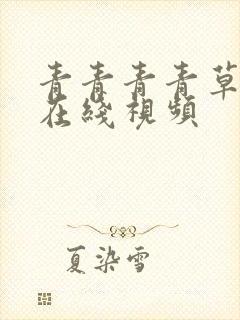 青青青青草
在綫視頻
夏染雪